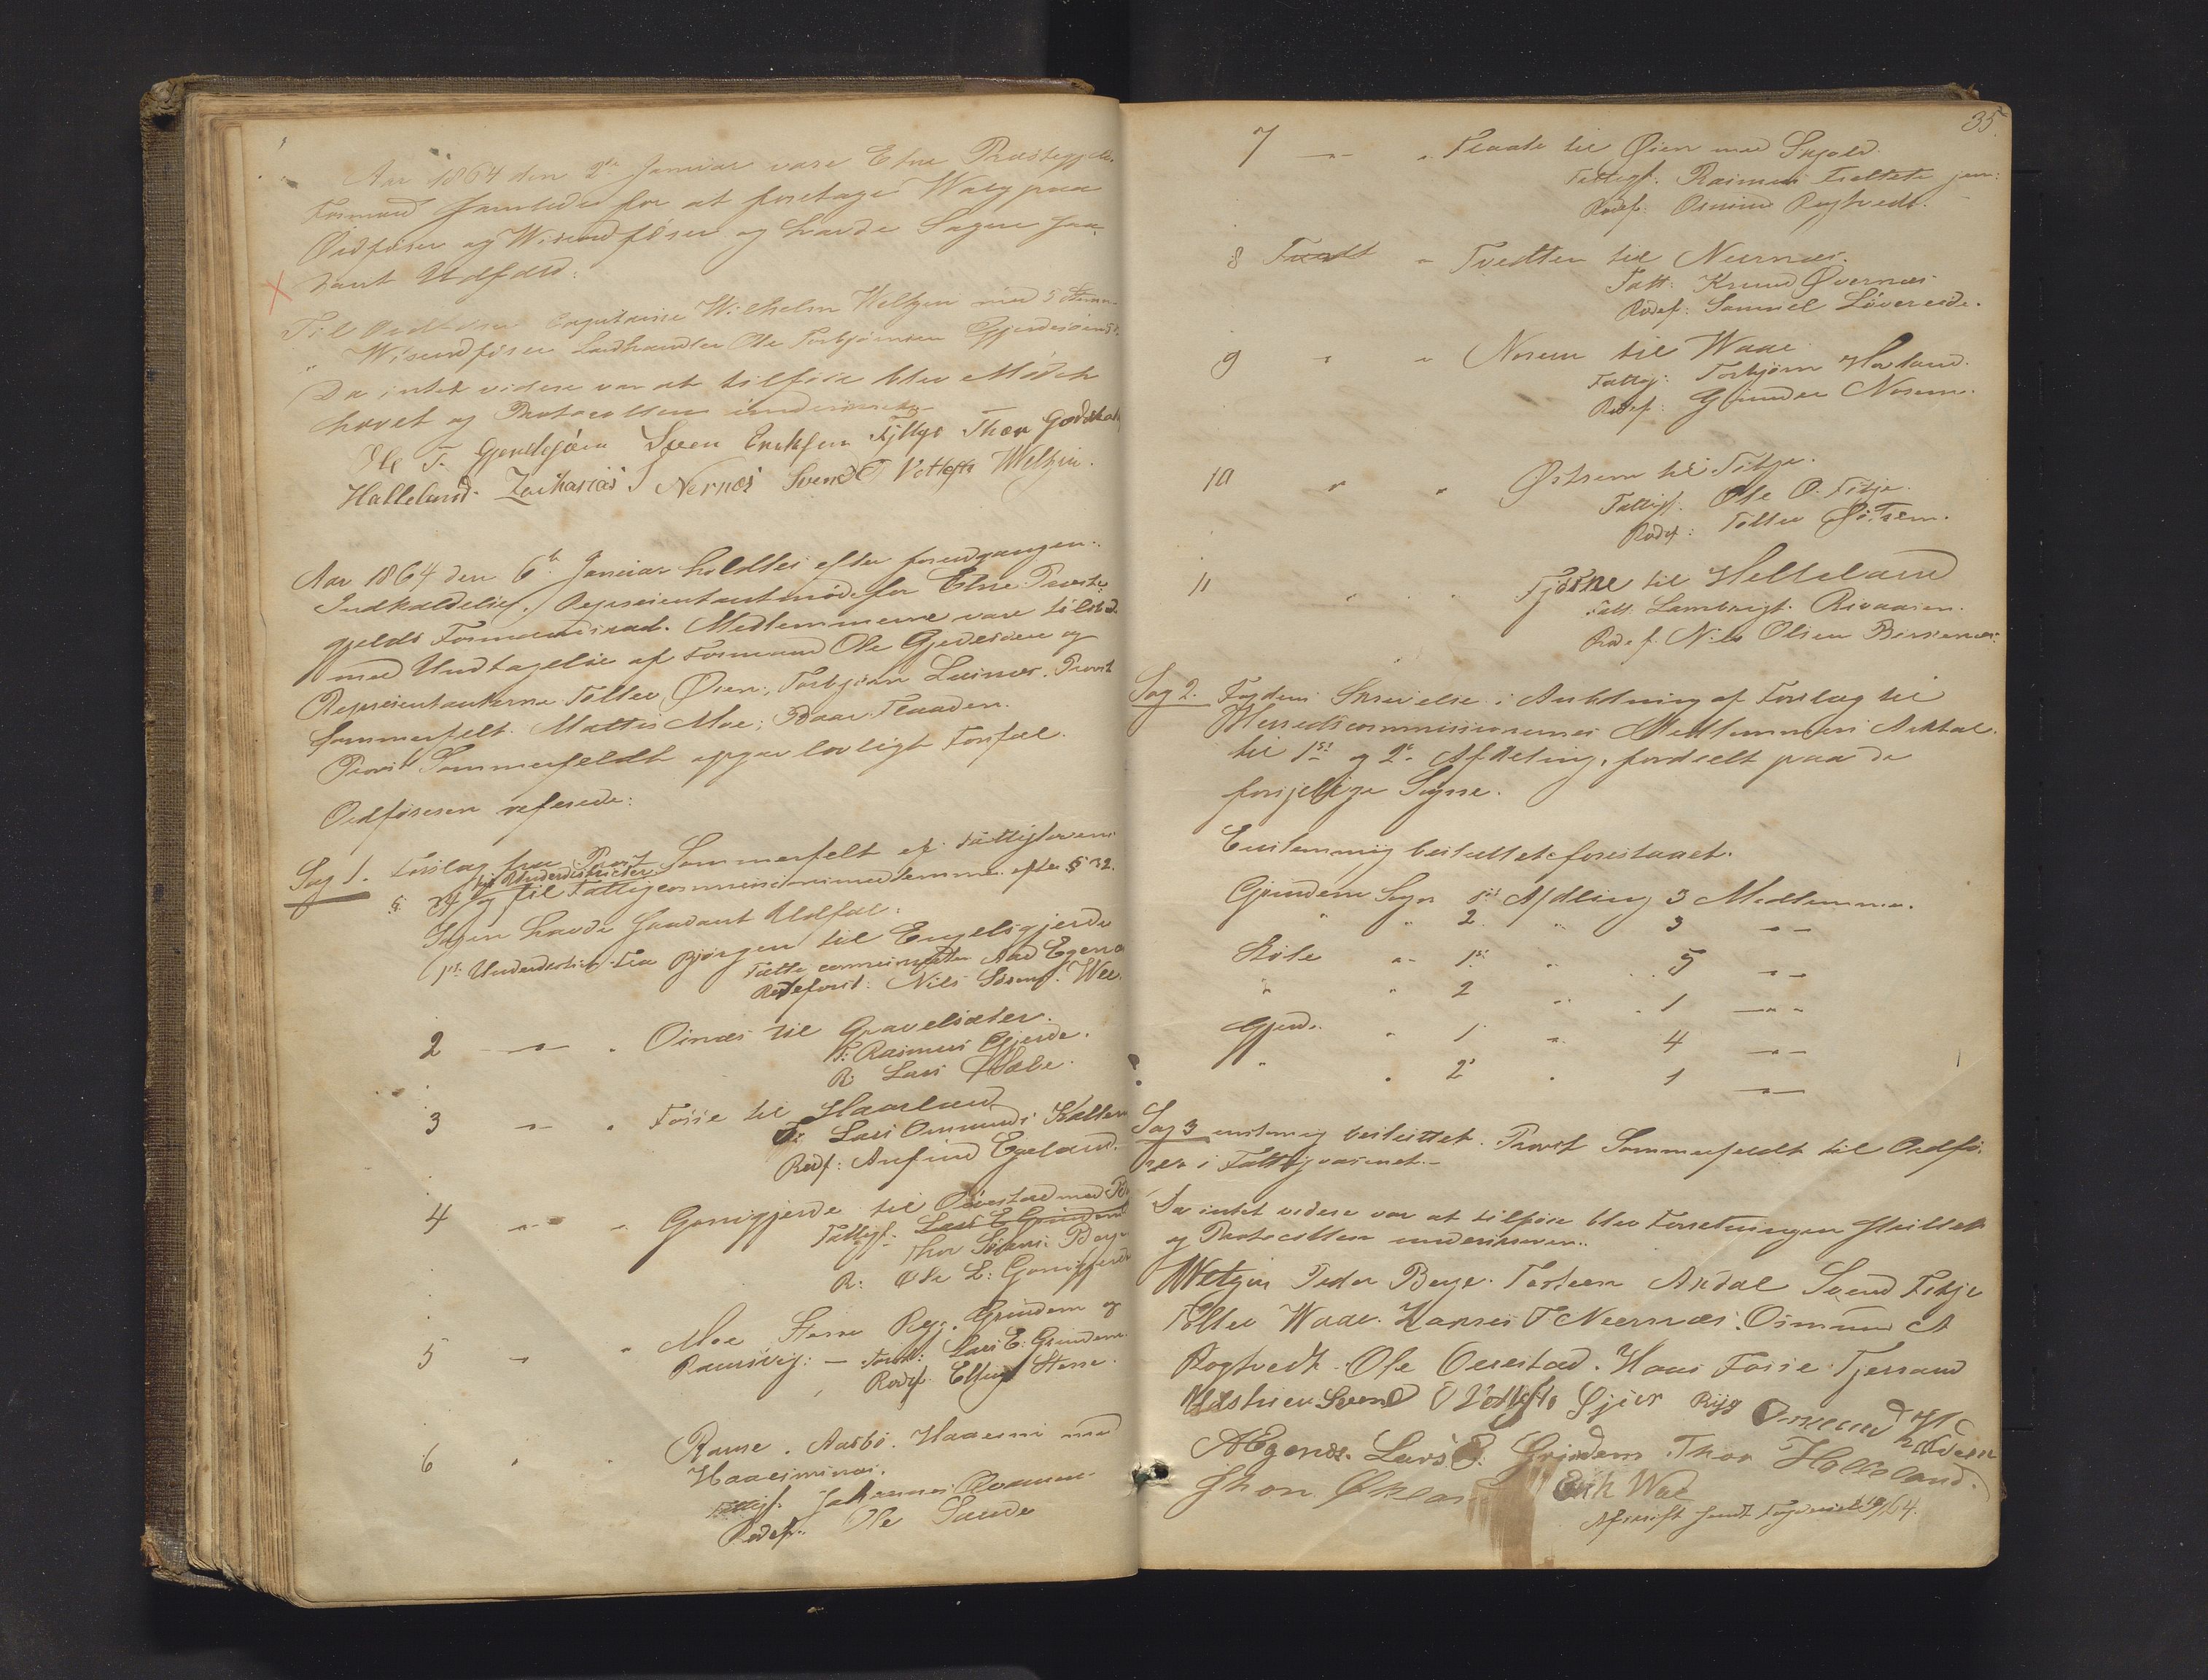 Aar 1864 den 2de Januar vare Etne Præstegjelds
Formænd samlede for at foretage Walg paa
Ordfører og Wiseordfører og havde Sagen saa-
dant Udfald:
Til Ordfører Capitaine Wilhelm Weltzin med 5 Stemmer
" Wiseordfører Landhandler Ole Torbjørnsen Gjerdesøen
Da intet videre var at tilføie blev Mødet
hævet og Protocollen underskrevet
Ole T. Gjerdesjøen Sven Eriksen Fitkje Thor Godskalk
Halleland. Zacharias T Nernæs Svend Vettefte Weltzin.
Aar 1864 den 6te Januar holdtes efter forudgangen
Indkaldelse, Representantmøde for Etne Præste-
gjelds Formandskab. Medlemmerne vare tilstede
med Undtagelse af Formand Ole Gjerdesøen og
Representanterne Tollev Øien, Torbjørn Leirnæs, Provst
Sommerfelt. Mattis Moe, Baar Flaaden.
Provst Sommerfeldt opgav lovligt Forfal.
Ordføreren refererede:
Sag 1. Forslag fra Provst Sommerfelt ef. Fattiglovens
til Underdistricter
§ 24 og til Fattigcommisionsmedlemmer efter § 32.
Sagen havde saadant Udfal:
1st Underdistrict fra Bjørgen til Engelsgjerde
Fatt. Aad Egenes
Rodeforst: Nils Wee.
2 — " — " Oinæs til Gravelsæter.
F: Rasmus Gjerde.
R: Lars Sæbe.
3 — " — " Fosse til Haaeland
F: Lars Omunds. Skatten
Rodf: Anfind Egeland.
4 " " Gonsigjerde til Øvestad med
Fattigf. Lars E Grindem
Thor
R: Ole L: Gonsigjerde
5 " " Moe Stene Ryg. Grindem og
Ramsvig: — Fatt: Lars E. Grindem.
Rodef. Elling Stene.
6 " " Rame. Aasbø. Haaeim med
Haaeimsnæs.
Fattigf. Johannes
Rodef. Ole Sande
35.
7 — " — " Flaate til Øien med Skjold.
Fattigf. Rasmus Tveitete jun:
Rodef: Osmund Rygtvedt.
8 Tvedt " Tvedten til Neernæs.
Fatt: Knud Øvernæs
Rodef: Samuel Løvereide.
9 " " Norem til Waae.
Fattig: Torbjørn Høiland.
Rodef: Gunder Norem.
10 " " Østrem til Fitje.
Fattigf. Ole O. Fitje.
Rodf: Tollev Østrem.
11 " " Fjøsne til Helleland
Fatt. Lambregt. Risvaasen.
Rod. f. Nils Olsen Birkenæs
Sag 2. Fogdens Skrivelse i Anledning af Forslag til
Herredscommissionernes Medlemmers Antal
til 1st og 2den Afdeling, fordeelt paa de
forsjellige Sogne.
Eenstemmig besluttet foreslaaet.
Grindem Sogn 1st Afdeling 3 Medlemmer.
" " 2 " 3 " "
Støle " 1st " 5 " "
" " 2 " 1 " "
Gjerde " 1 " 4 " "
" " 2 " 1 " "
Sag 3 enstemig besluttet. Provst Sommerfeldt til Ordfø-
rer i Fattigvæsenet.—
Da intet videre var at tilføie blev Forretningen sluttet
og Protocollen underskreven.
Weltzin Peder Berge. Torsteen Axdal Svend Fitje
Tollev Waae. Hanses T Neernæs. Osmund A
Rogtvedt. Ole Øvrestad. Haas Fosse Tjerand
Østrem Svend Vettefte Sjur Ryg Osmund
A Egenes. Lars E. Grindem Thor Helleland.
Jhon Erik Wae
Afskrift sendt Fogden 19/1 64.